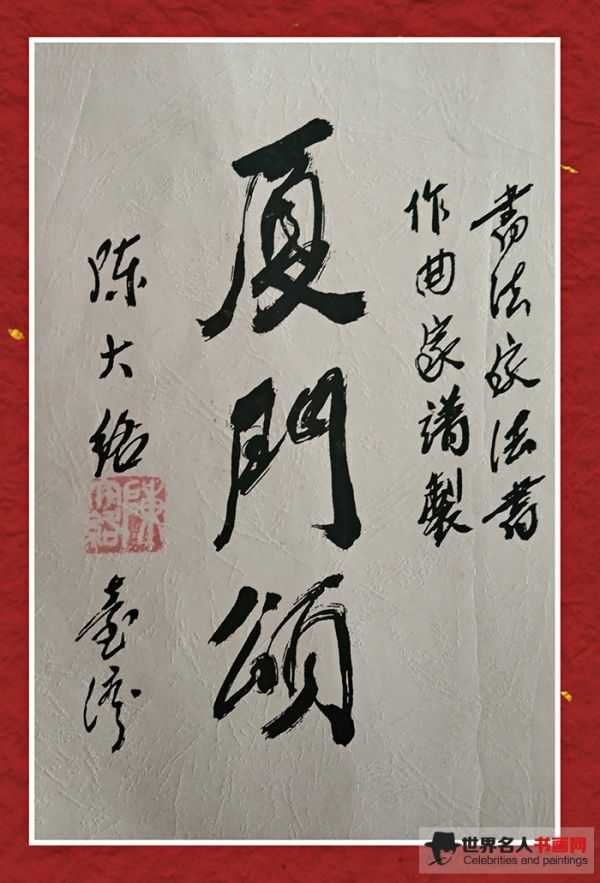 書法家法書
作曲家譜製
厦門頌
陈大络
臺灣
世界名人书画网
Celebrities and paintings